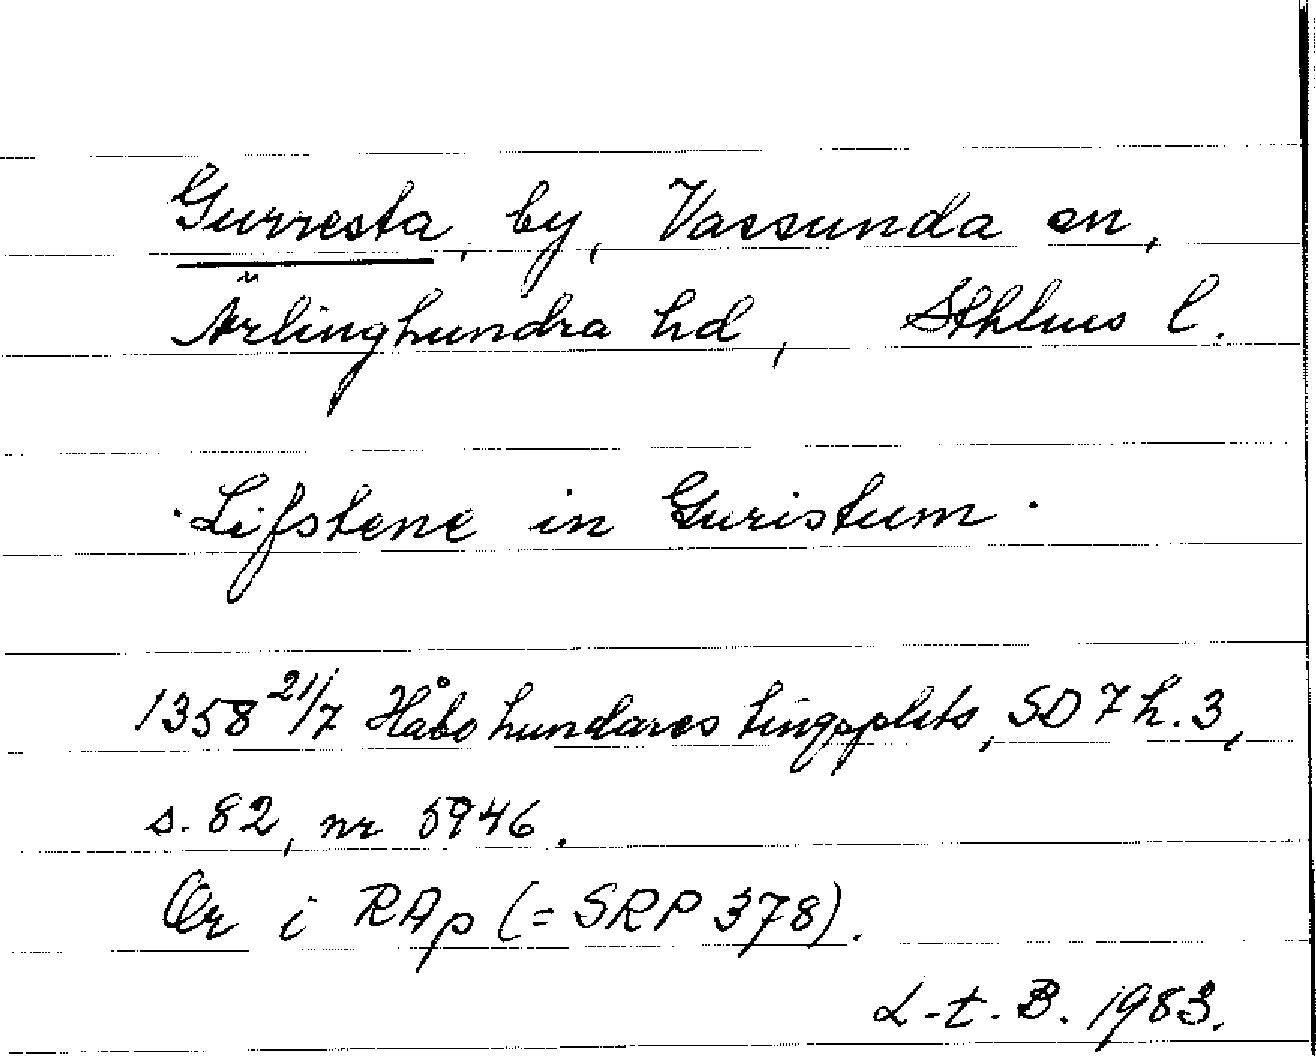 Gurresta, by, Vassunda sn,
Ärlinghundra hd, Sthlms l.
·Lifstene in Guristum·
1358 21/7 Håbo hundares tingsplats, SD 7 h. 3,
s. 82, nr 5946.
Or i RAp (= SRP 378).
L-t. B. 1983.